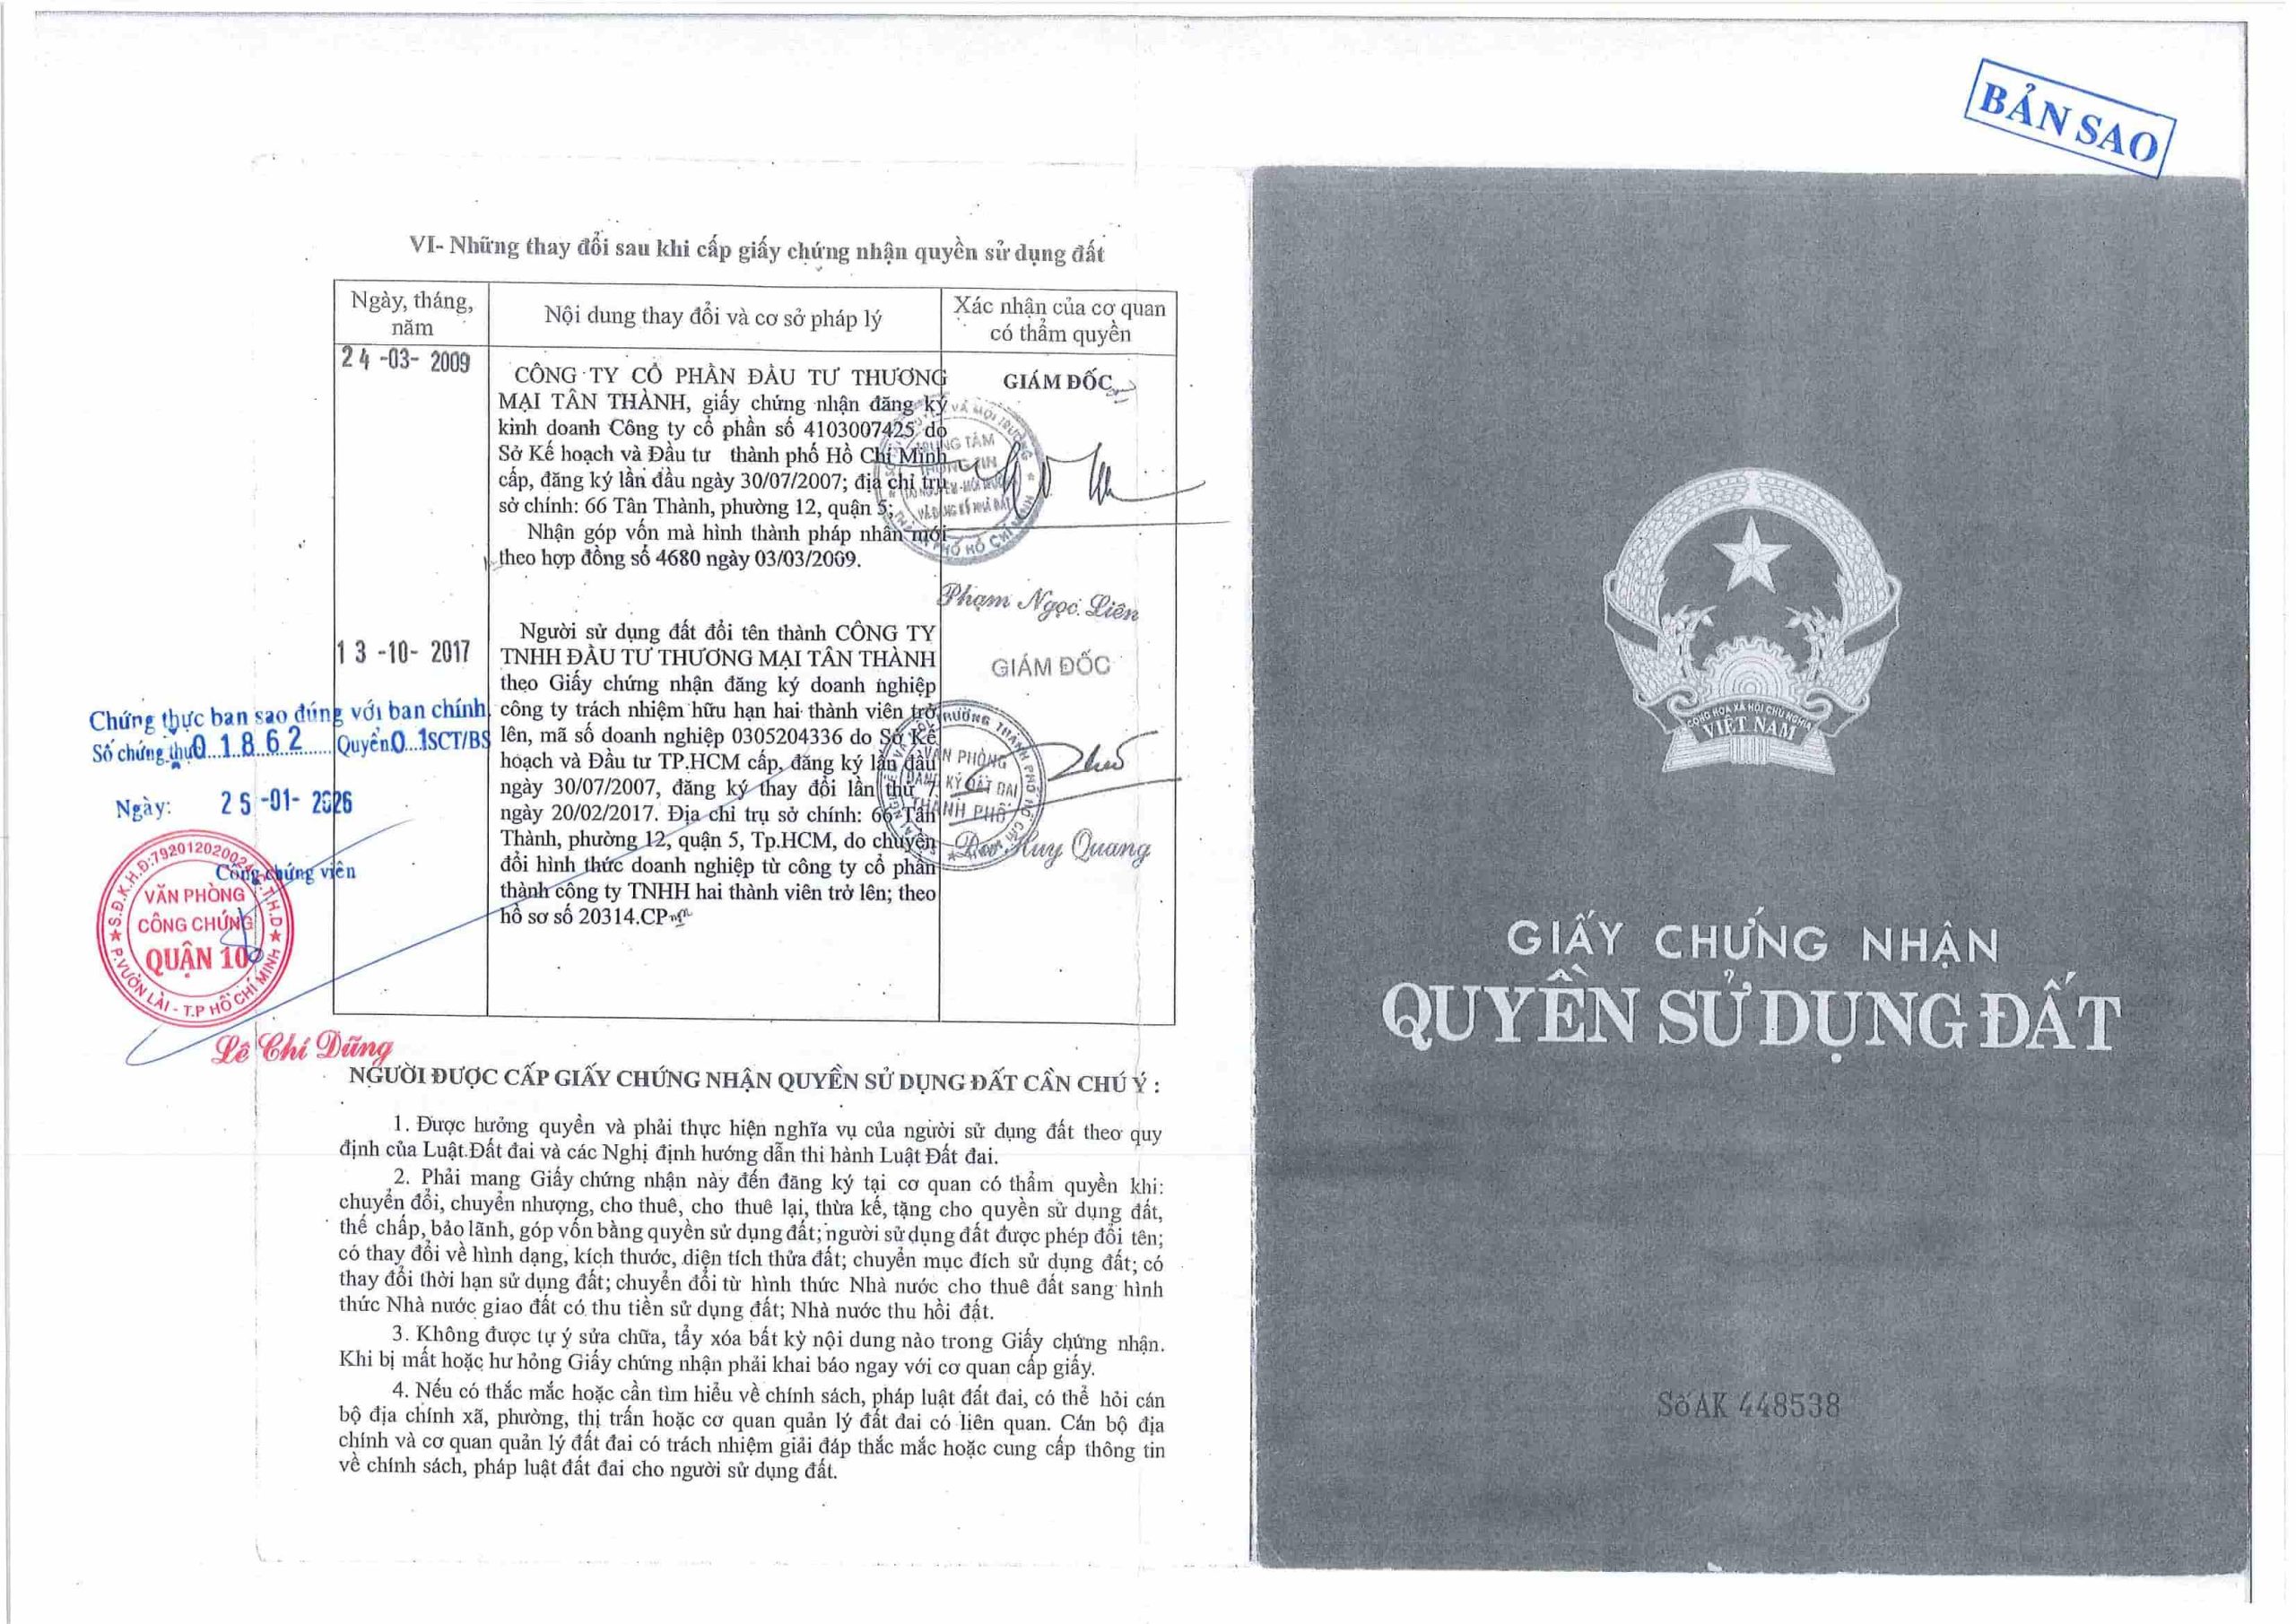 BẢN SAO
VI- Những thay đổi sau khi cấp giấy chứng nhận quyền sử dụng đất
Ngày, tháng, năm
Nội dung thay đổi và cơ sở pháp lý
Xác nhận của cơ quan có thẩm quyền
24 -03- 2009
CÔNG TY CỔ PHẦN ĐẦU TƯ THƯƠNG
MẠI TÂN THÀNH, giấy chứng nhận đăng ký
kinh doanh Công ty cổ phần số 4103007425 do
Sở Kế hoạch và Đầu tư thành phố Hồ Chí Minh
cấp, đăng ký lần đầu ngày 30/07/2007; địa chỉ trụ
sở chính: 66 Tân Thành, phường 12, quận 5;
Nhận góp vốn mà hình thành pháp nhân mới
theo hợp đồng số 4680 ngày 03/03/2009.
GIÁM ĐỐC
TRUNG TÂM
THÔNG TIN
TÀI NGUYÊN-MÔI TRƯỜNG
VÀ ĐĂNG KÝ NHÀ ĐẤT
Phạm Ngọc Liên
13 -10- 2017
Người sử dụng đất đổi tên thành CÔNG TY
TNHH ĐẦU TƯ THƯƠNG MẠI TÂN THÀNH
theo Giấy chứng nhận đăng ký doanh nghiệp
công ty trách nhiệm hữu hạn hai thành viên trở
lên, mã số doanh nghiệp 0305204336 do Sở Kế
hoạch và Đầu tư TP.HCM cấp, đăng ký lần đầu
ngày 30/07/2007, đăng ký thay đổi lần thứ 7
ngày 20/02/2017. Địa chỉ trụ sở chính: 66 Tân
Thành, phường 12, quận 5, Tp.HCM, do chuyển
đổi hình thức doanh nghiệp từ công ty cổ phần
thành công ty TNHH hai thành viên trở lên; theo
hồ sơ số 20314.CP
GIÁM ĐỐC
VĂN PHÒNG
ĐĂNG KÝ ĐẤT ĐAI
THÀNH PHỐ
Huy Quang
Chứng thực bản sao đúng với bản chính
Số chứng thực 01862 Quyển 01SCT/BS
Ngày: 25 -01- 2026
Công chứng viên
S.Đ.K.H.Đ:7920120200
VĂN PHÒNG
CÔNG CHỨNG
QUẬN 10
P.VƯỜN LÀI - T.P HỒ CHÍ MINH
Lê Chí Dũng
NGƯỜI ĐƯỢC CẤP GIẤY CHỨNG NHẬN QUYỀN SỬ DỤNG ĐẤT CẦN CHÚ Ý :
1. Được hưởng quyền và phải thực hiện nghĩa vụ của người sử dụng đất theo quy
định của Luật Đất đai và các Nghị định hướng dẫn thi hành Luật Đất đai.
2. Phải mang Giấy chứng nhận này đến đăng ký tại cơ quan có thẩm quyền khi:
chuyển đổi, chuyển nhượng, cho thuê, cho thuê lại, thừa kế, tặng cho quyền sử dụng đất,
thế chấp, bảo lãnh, góp vốn bằng quyền sử dụng đất; người sử dụng đất được phép đổi tên;
có thay đổi về hình dạng, kích thước, diện tích thửa đất; chuyển mục đích sử dụng đất; có
thay đổi thời hạn sử dụng đất; chuyển đổi từ hình thức Nhà nước cho thuê đất sang hình
thức Nhà nước giao đất có thu tiền sử dụng đất; Nhà nước thu hồi đất.
3. Không được tự ý sửa chữa, tẩy xóa bất kỳ nội dung nào trong Giấy chứng nhận.
Khi bị mất hoặc hư hỏng Giấy chứng nhận phải khai báo ngay với cơ quan cấp giấy.
4. Nếu có thắc mắc hoặc cần tìm hiểu về chính sách, pháp luật đất đai, có thể hỏi cán
bộ địa chính xã, phường, thị trấn hoặc cơ quan quản lý đất đai có liên quan. Cán bộ địa
chính và cơ quan quản lý đất đai có trách nhiệm giải đáp thắc mắc hoặc cung cấp thông tin
về chính sách, pháp luật đất đai cho người sử dụng đất.
CỘNG HÒA XÃ HỘI CHỦ NGHĨA
VIỆT NAM
GIẤY CHỨNG NHẬN
QUYỀN SỬ DỤNG ĐẤT
Số AK 448538